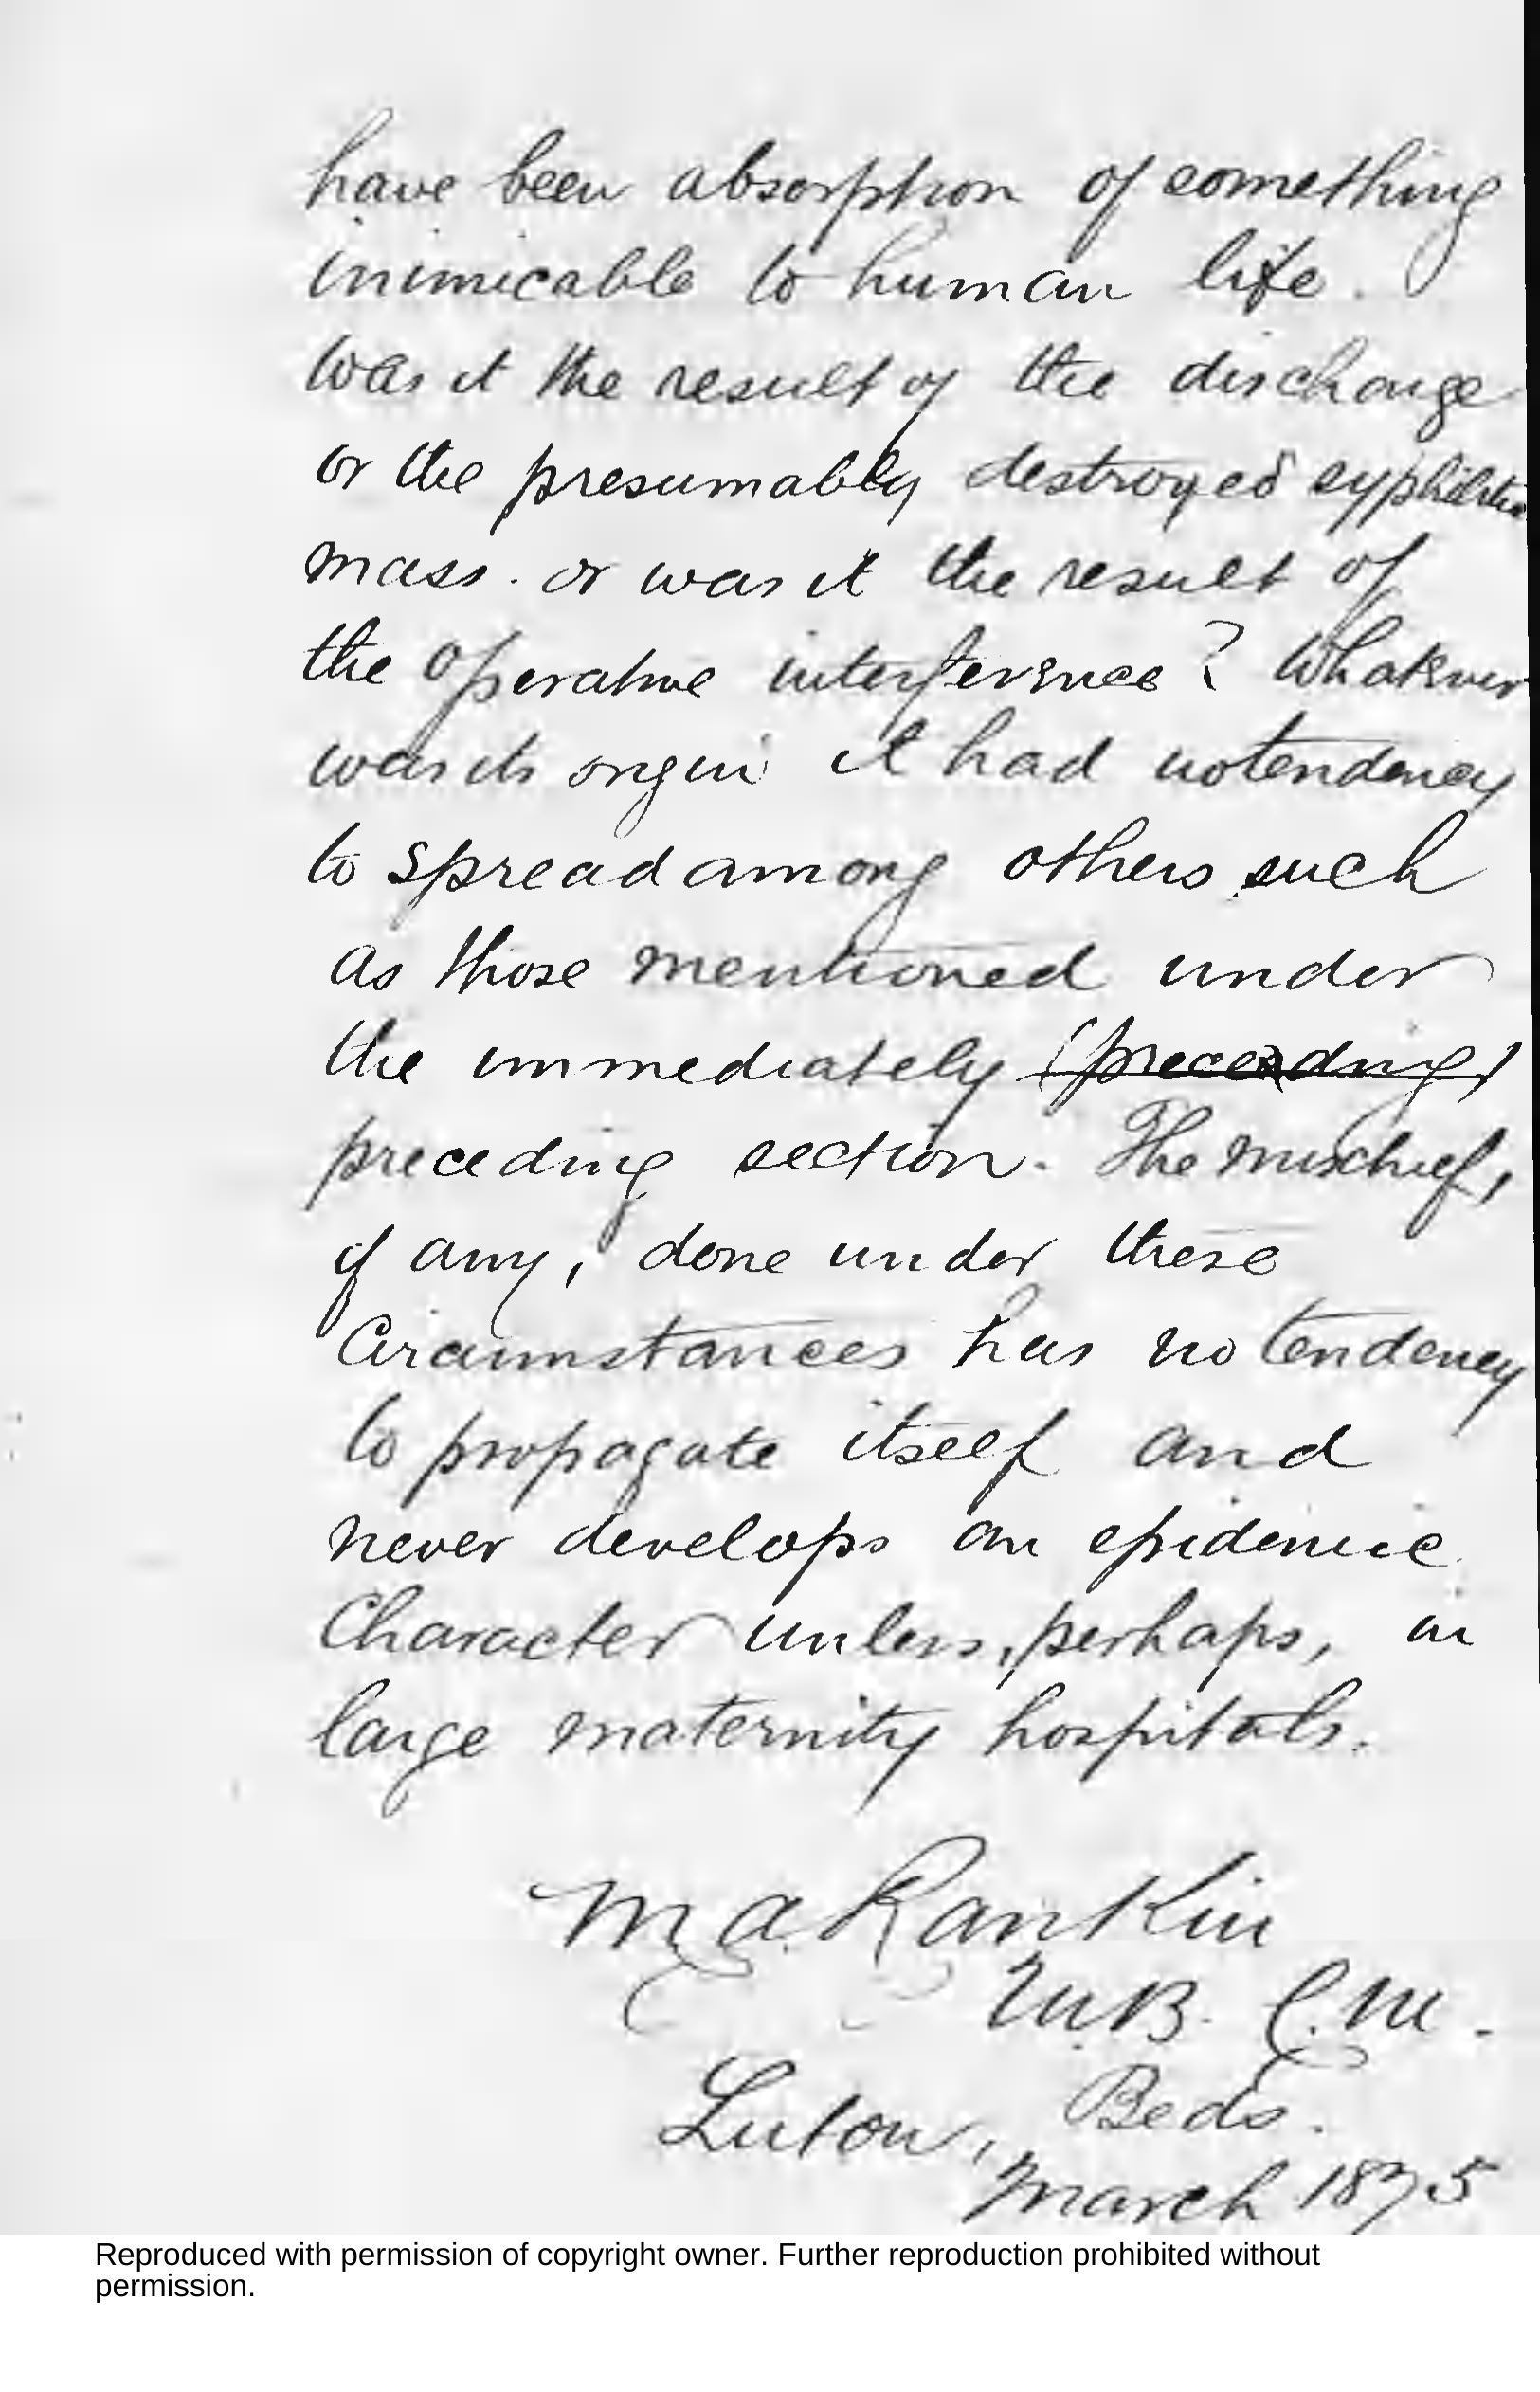 have been absorption of something
inimicable to human life.
Was it the result of the discharge
or the presumably destroyed syphilitic
mass. or was it the result of
the operative interference? Whatever
was its origin it had no tendency
to spread among others such
as those mentioned under
the immediately (preceeding)
preceding section. The mischief,
if any, done under these
Circumstances has no tendency
to propagate itself and
never develops an epidemic
Character unless, perhaps, in
large maternity hospitals.
M. A. Rankin
M.B. C.M.
Luton, Beds.
March 1875
Reproduced with permission of copyright owner. Further reproduction prohibited without
permission.